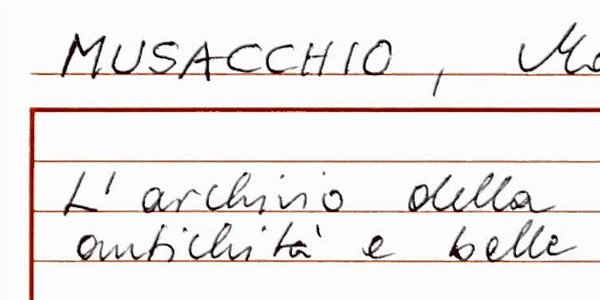 MUSACCHIO,
L'archivio della
antichità e belle